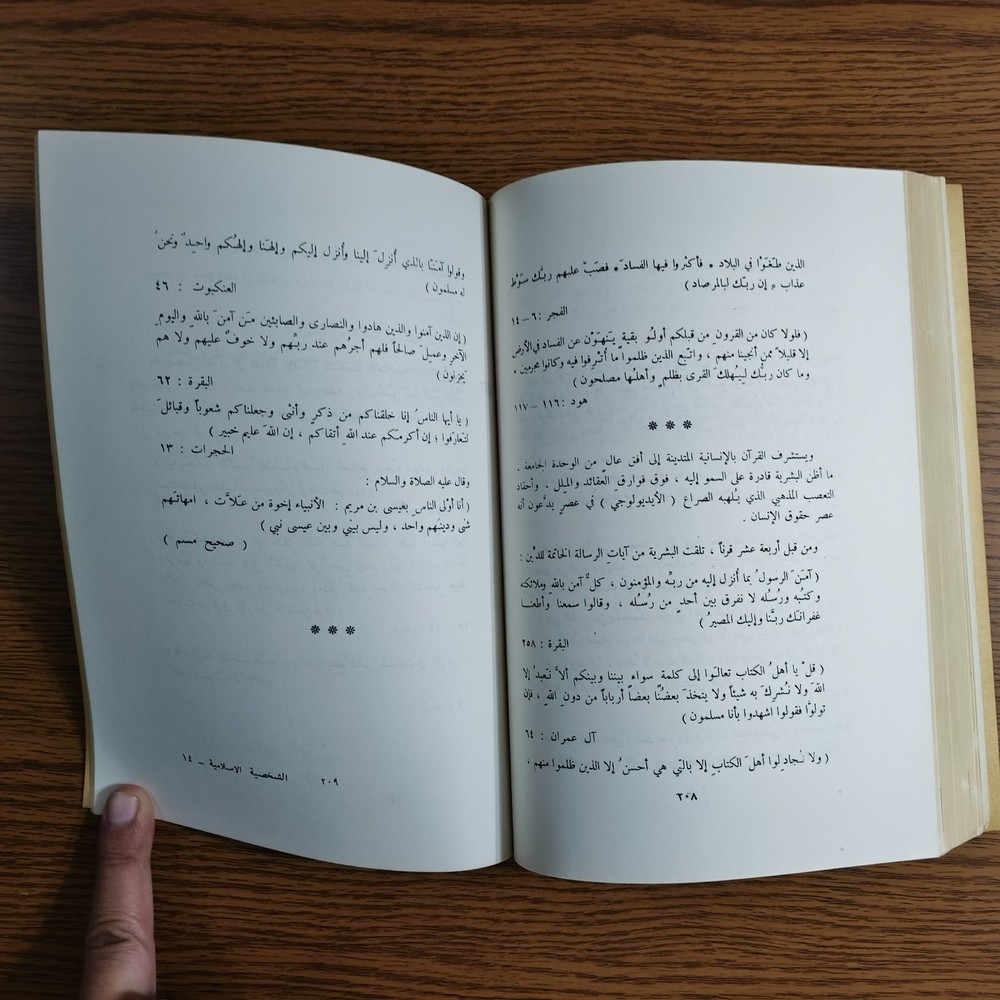 الذين طَغَوْا في البلاد * فأكثروا فيها الفسادَ * فصَبَّ عليهم ربُّك سَوْطَ
عذاب * إن ربَّك لبالمرصاد )
الفجر : ٦ – ١٤
( فلولا كان من القرونِ من قبلكم أولُو بقيةٍ يَنهَوْن عن الفساد في الأرض
إلا قليلاً ممن أنجينا منهم ، واتَّبع الذين ظلموا ما أُتْرِفوا فيه وكانوا مجرمين *
وما كان ربُّك ليُهلكَ القرى بظلمٍ وأهلُها مصلحون )
هود : ١١٦ – ١١٧
* * *
ويستشرف القرآن بالإنسانية المتدينة إلى أفق عالٍ من الوحدة الجامعة .
ما أظن البشرية قادرة على السمو إليه ، فوق فوارق العقائد والملل ، وأحقاد
التعصب المذهبي الذي يُلهبه الصراع ( الأيديولوجي ) في عصرٍ يدَّعون أنه
عصر حقوق الإنسان .
ومن قبل أربعة عشر قرناً ، تلقت البشرية من آياتِ الرسالة الخاتمة للدِّين :
( آمَنَ الرسولُ بما أُنزل إليه من ربِّه والمؤمنون ، كلٌّ آمن باللهِ وملائكته
وكتُبه ورُسُلِه لا نفرق بين أحدٍ من رُسُله ، وقالوا سمعنا وأطعنا
غفرانَك ربَّنا وإليك المصيرُ )
البقرة : ٢٥٨
( قلْ يا أهلَ الكتاب تعالَوا إلى كلمة سواءٍ بيننا وبينكم ألاَّ نعبدَ إلا
اللهَ ولا نُشركَ به شيئاً ولا يتخذَ بعضُنا بعضاً أرباباً من دونِ اللهِ ، فإن
تولوَّا فقولوا اشهدوا بأنا مسلمون )
آل عمران : ٦٤
( ولا تُجادِلوا أهلَ الكتابِ إلا بالتي هي أحسنُ إلا الذين ظلموا منهم ،
٢٠٨
وقولوا آمَنَّا بالذي أُنزِلَ إلينا وأنزل إليكم وإلهنا وإلهُكم واحِدٌ ونحنُ
له مسلمون )
العنكبوت : ٤٦
( إن الذين آمنوا والذين هادوا والنصارى والصابئين مَن آمنَ باللهِ واليومِ
الآخرِ وعمِلَ صالحاً فلهم أجرُهم عند ربِّهم ولا خوفٌ عليهم ولا هم
يحزنون )
البقرة : ٦٢
( يا أيها الناسُ إنا خلقناكم من ذكرٍ وأنثى وجعلناكم شعوباً وقبائلَ
لتعارَفوا ؛ إن أكرمَكم عند اللهِ أتقاكم ، إن اللهَ عليم خبير )
الحجرات : ١٣
وقال عليه الصلاة والسلام :
( أنا أوْلى الناسِ بعيسى بن مريم : الأنبياء إخوة من عَلاَّت ، امهاتهم
شتى ودينهم واحد ، وليس بيني وبين عيسى نبي )
( صحيح مسلم )
* * *
٢٠٩ الشخصية الاسلامية – ١٤